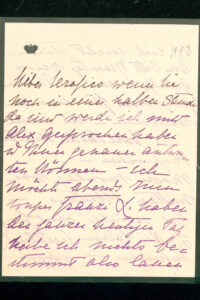 lieber Serafico wenn Sie
noch in einer halben Stunde
da sind werde ich mit
Alex gesprochen haben
u Ihnen genauer antwor
ten können – ich
möchte abends mein
ganzen heutigen Tag
habe ich nichts be
stimmt also lassen